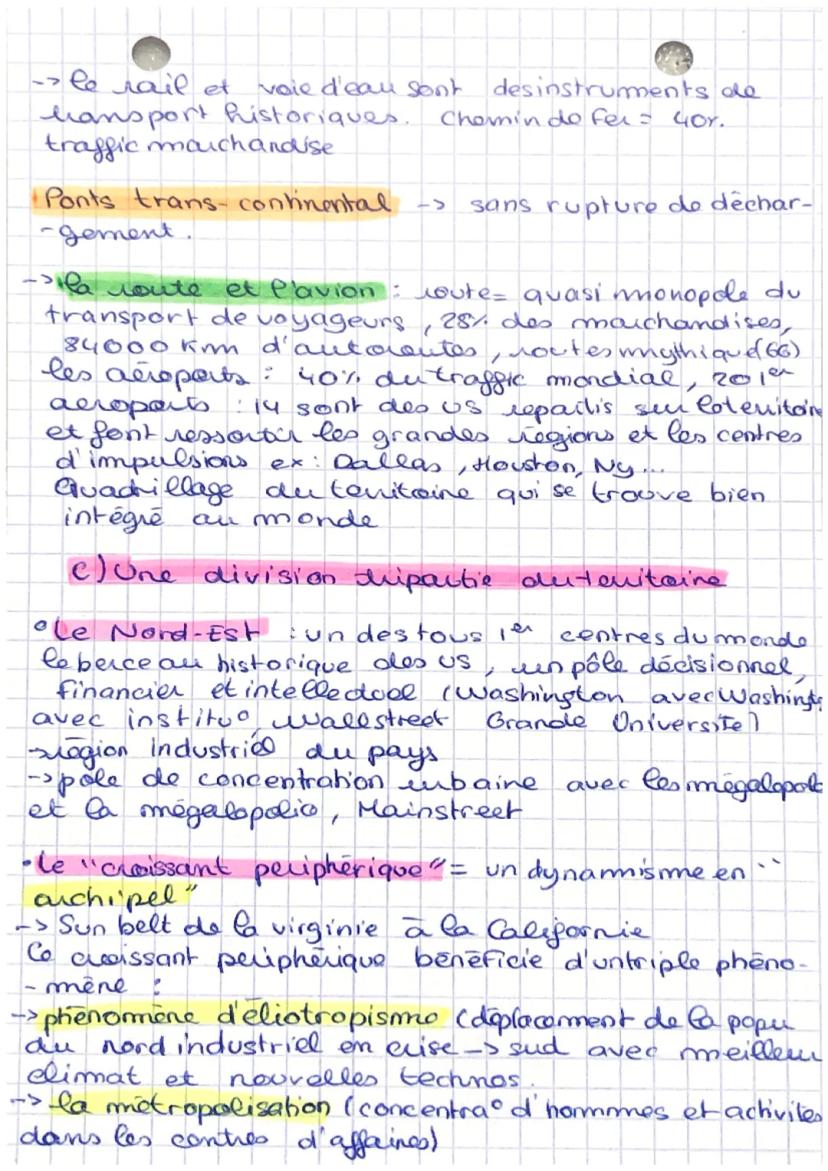 -> le rail et voie d'eau sont des instruments de
transport historiques. Chemin de fer = 40%.
traffic marchandise
Ponts trans-continental -> sans rupture de déchar-
-gement.
-> la route et l'avion : route = quasi monopole du
transport de voyageurs, 28% des marchandises,
84000 km d'autoroutes, routes mythique (66)
les aéroports : 40% du traffic mondial, 20 1er
aeroports : 14 sont des US repartis sur le territoire
et font ressortir les grandes régions et les centres
d'impulsions ex : Dallas, Houston, Ny...
Quadrillage du territoire qui se trouve bien
intégré au monde
C) Une division tripartie du territoire
• Le Nord-Est : un des tous 1er centres du monde
le berceau historique des US, un pôle décisionnel,
financier et intellectuel (Washington avec Washingt
avec institu°, Wallstreet Grande Université)
-> région industriel du pays
-> pôle de concentration urbaine avec les mégalopol
et la mégalopolis, Mainstreet
• Le "croissant periphérique" = un dynamnisme en "
archipel"
-> Sun belt de la virginie à la Californie
Ce croissant periphérique bénéficie d'un triple phéno-
-mène :
-> phénomène d'éliotropisme (déplacement de la popu
du nord industriel en crise -> sud avec meilleur
climat et nouvelles technos.
-> la métropolisation (concentra° d'hommmes et activites
dans les centres d'affaires)